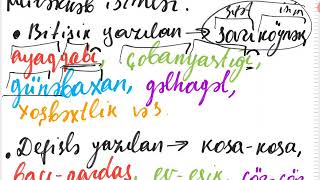 mürəkkəb isimlər.
sifət isim
• Bitişik yazılan → sarıköynək
ayaqqabı, çobanyastığı,
günəbaxan, gəlhagəl,
xoşbəxtlik və s.
• Defislə yazılan → kosa-kosa,
bacı-qardaş, ev-eşik, göz-göz